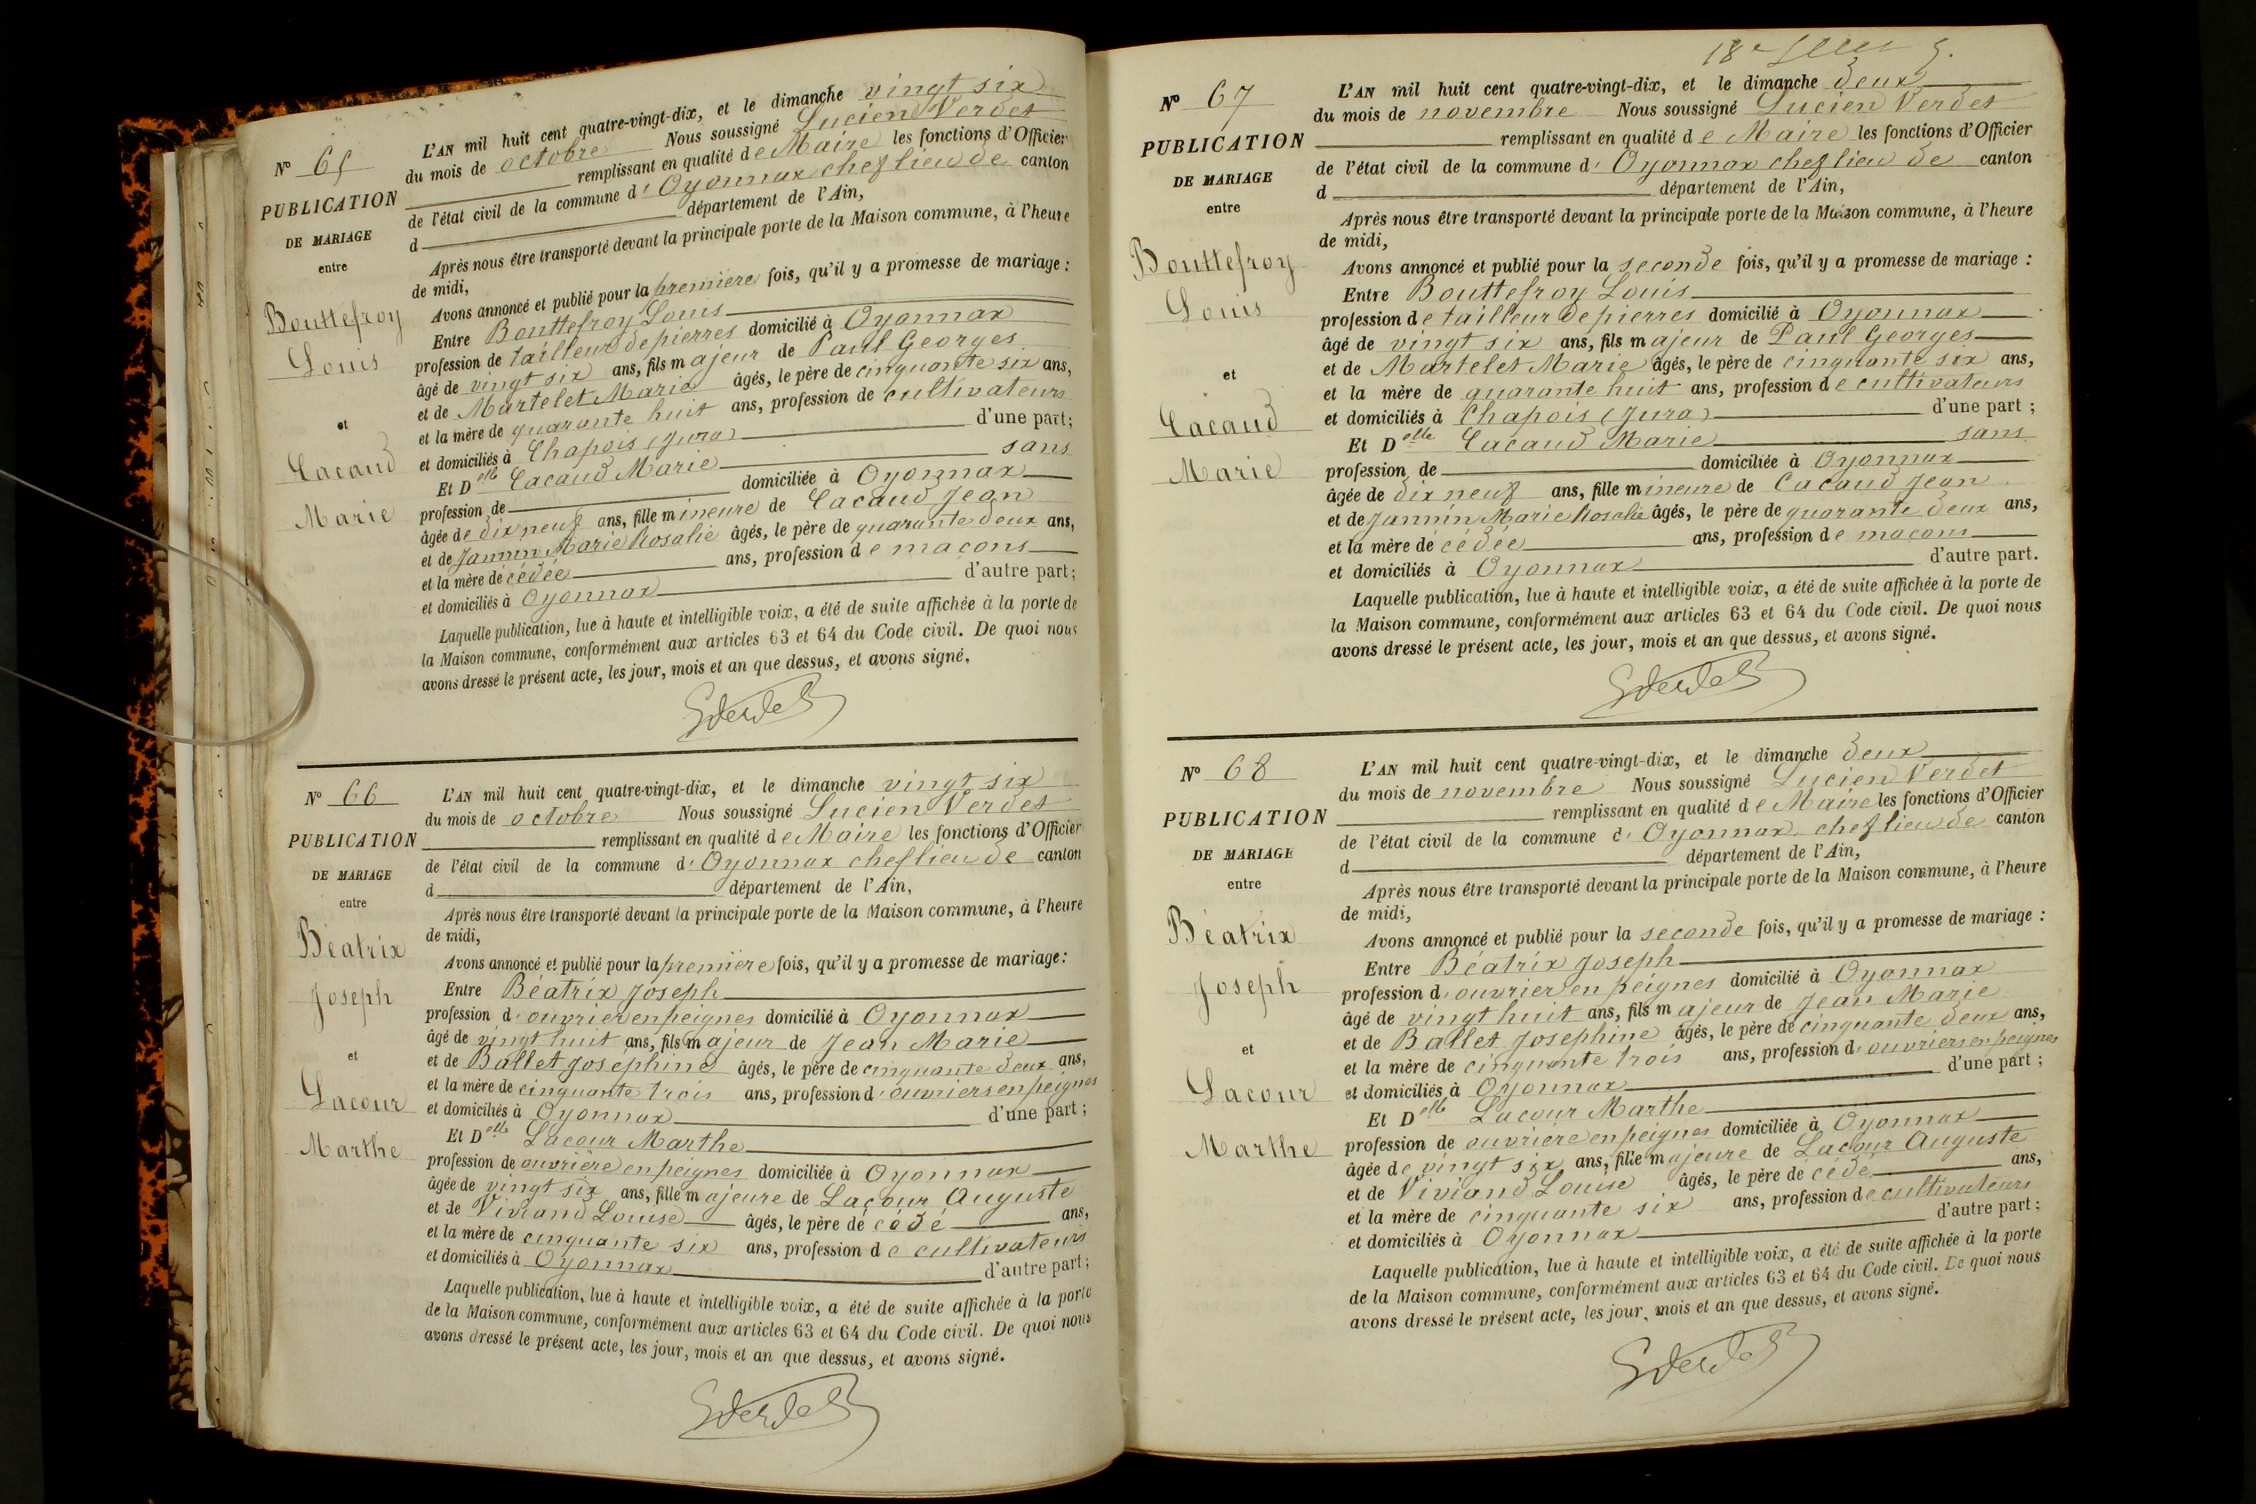 N° 65
PUBLICATION
DE MARIAGE
entre
Bouttefroy
Louis
et
Cacaud
Marie
L'AN mil huit cent quatre-vingt-dix, et le dimanche vingt six
du mois de octobre Nous soussigné Lucien Verdet
remplissant en qualité de Maire les fonctions d'Officier
de l'état civil de la commune d'Oyonnax chef lieu de canton
d département de l'Ain,
Après nous être transporté devant la principale porte de la Maison commune, à l'heure
de midi,
Avons annoncé et publié pour la première fois, qu'il y a promesse de mariage :
Entre Bouttefroy Louis
profession de tailleur de pierres domicilié à Oyonnax
âgé de vingt six ans, fils majeur de Paul Georges
et de Martelet Marie âgés, le père de cinquante six ans,
et la mère de quarante huit ans, profession de cultivateurs
et domiciliés à Chapois (Jura) d'une part;
Et Delle Cacaud Marie sans
profession de domiciliée à Oyonnax
âgée de dix neuf ans, fille mineure de Cacaud Jean
et de Jannin Marie Rosalie âgés, le père de quarante deux ans,
et la mère décédée ans, profession de maçons
et domiciliés à Oyonnax d'autre part;
Laquelle publication, lue à haute et intelligible voix, a été de suite affichée à la porte de
la Maison commune, conformément aux articles 63 et 64 du Code civil. De quoi nous
avons dressé le présent acte, les jour, mois et an que dessus, et avons signé.
N° 66
PUBLICATION
DE MARIAGE
entre
Béatrix
Joseph
et
Lacour
Marthe
L'AN mil huit cent quatre-vingt-dix, et le dimanche vingt six
du mois de octobre Nous soussigné Lucien Verdet
remplissant en qualité de Maire les fonctions d'Officier
de l'état civil de la commune d'Oyonnax chef lieu de canton
d département de l'Ain,
Après nous être transporté devant la principale porte de la Maison commune, à l'heure
de midi,
Avons annoncé et publié pour la première fois, qu'il y a promesse de mariage:
Entre Béatrix Joseph
profession d'ouvrier en peignes domicilié à Oyonnax
âgé de vingt huit ans, fils majeur de Jean Marie
et de Ballet Joséphine âgés, le père de cinquante deux ans,
et la mère de cinquante trois ans, profession d'ouvriers en peignes
et domiciliés à Oyonnax d'une part;
Et Delle Lacour Marthe
profession de ouvrière en peignes domiciliée à Oyonnax
âgée de vingt six ans, fille majeure de Lacour Auguste
et de Viviand Louise âgés, le père décédé ans,
et la mère de cinquante six ans, profession de cultivateurs
et domiciliés à Oyonnax d'autre part;
Laquelle publication, lue à haute et intelligible voix, a été de suite affichée à la porte
de la Maison commune, conformément aux articles 63 et 64 du Code civil. De quoi nous
avons dressé le présent acte, les jour, mois et an que dessus, et avons signé.
N° 67
PUBLICATION
DE MARIAGE
entre
Bouttefroy
Louis
et
Cacaud
Marie
L'AN mil huit cent quatre-vingt-dix, et le dimanche deux
du mois de novembre Nous soussigné Lucien Verdet
remplissant en qualité de Maire les fonctions d'Officier
de l'état civil de la commune d'Oyonnax chef lieu de canton
d département de l'Ain,
Après nous être transporté devant la principale porte de la Maison commune, à l'heure
de midi,
Avons annoncé et publié pour la seconde fois, qu'il y a promesse de mariage :
Entre Bouttefroy Louis
profession de tailleur de pierres domicilié à Oyonnax
âgé de vingt six ans, fils majeur de Paul Georges
et de Martelet Marie âgés, le père de cinquante six ans,
et la mère de quarante huit ans, profession de cultivateurs
et domiciliés à Chapois (Jura) d'une part ;
Et Delle Cacaud Marie sans
profession de domiciliée à Oyonnax
âgée de dix neuf ans, fille mineure de Cacaud Jean
et de Jannin Marie Rosalie âgés, le père de quarante deux ans,
et la mère décédée ans, profession de maçons
et domiciliés à Oyonnax d'autre part.
Laquelle publication, lue à haute et intelligible voix, a été de suite affichée à la porte de
la Maison commune, conformément aux articles 63 et 64 du Code civil. De quoi nous
avons dressé le présent acte, les jour, mois et an que dessus, et avons signé.
N° 68
PUBLICATION
DE MARIAGE
entre
Béatrix
Joseph
et
Lacour
Marthe
L'AN mil huit cent quatre-vingt-dix, et le dimanche deux
du mois de novembre Nous soussigné Lucien Verdet
remplissant en qualité de Maire les fonctions d'Officier
de l'état civil de la commune d'Oyonnax chef lieu de canton
d département de l'Ain,
Après nous être transporté devant la principale porte de la Maison commune, à l'heure
de midi,
Avons annoncé et publié pour la seconde fois, qu'il y a promesse de mariage :
Entre Béatrix Joseph
profession d'ouvrier en peignes domicilié à Oyonnax
âgé de vingt huit ans, fils majeur de Jean Marie
et de Ballet Joséphine âgés, le père de cinquante deux ans,
et la mère de cinquante trois ans, profession d'ouvriers en peignes
et domiciliés à Oyonnax d'une part ;
Et Delle Lacour Marthe
profession de ouvrière en peignes domiciliée à Oyonnax
âgée de vingt six ans, fille majeure de Lacour Auguste
et de Viviand Louise âgés, le père décédé ans,
et la mère de cinquante six ans, profession de cultivateurs
et domiciliés à Oyonnax d'autre part ;
Laquelle publication, lue à haute et intelligible voix, a été de suite affichée à la porte
de la Maison commune, conformément aux articles 63 et 64 du Code civil. De quoi nous
avons dressé le présent acte, les jour, mois et an que dessus, et avons signé.